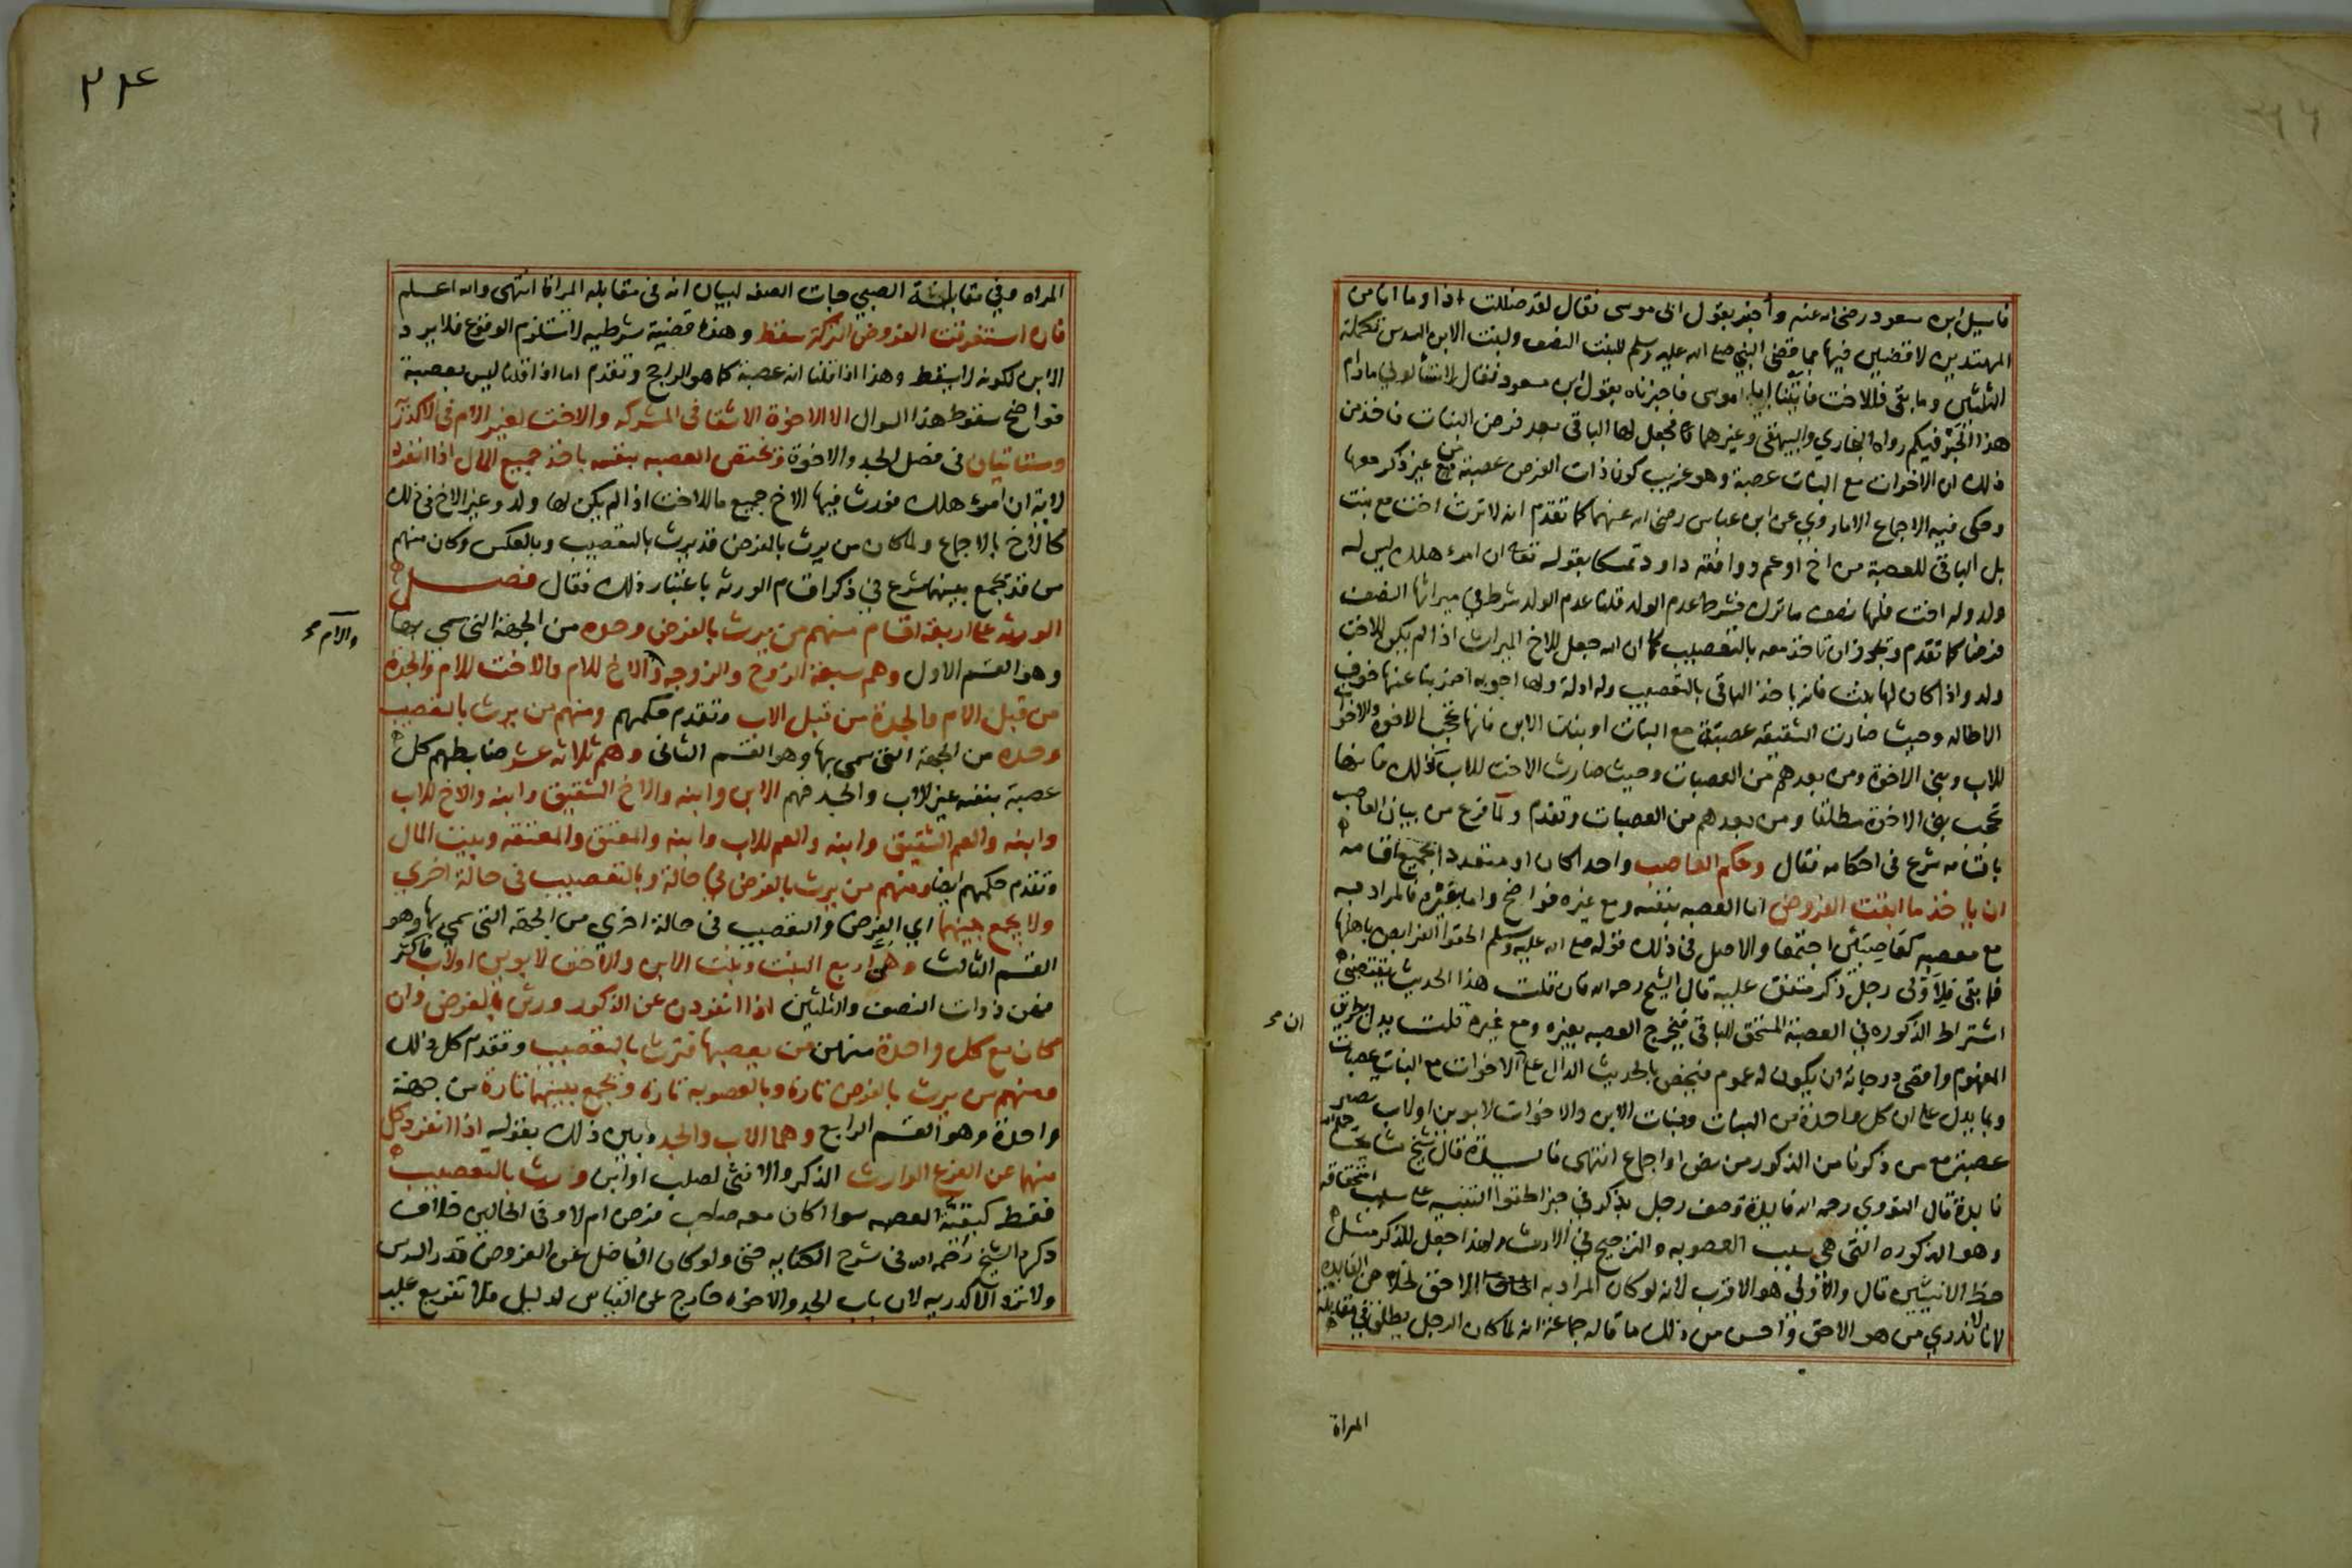 فاسيل ابن مسعود رضي الله عنه واخبر بقول ابي موسى فقال لقد ضللت اذا وما انا من
المهتدين لاقضين فيها بما قضى النبي صلى الله عليه وسلم للبنت النصف ولبنت الابن السدس تكملة
الثلثين وما بقي فللاخت فاتينا ابا موسى فاخبرناه بقول ابن مسعود فقال لا تسألوني مادام
هذا الحبر فيكم رواه البخاري والبيهقي وغيرهما فجعل لها الباقي بعد فرض البنات فاخذ من
ذلك ان الاخوات مع البنات عصبة وهو غريب كون ذات الفرض عصبة مع غير ذكر معها
وحكي فيه الاجماع الا ما روي عن ابن عباس رضي الله عنهما كما تقدم انه لا ترث اخت مع بنت
بل الباقي للعصبة من اخ او عم ووافقه داود تمسكا بقوله تعالى ان امرء هلك ليس له
ولد وله اخت فلها نصف ما ترك فشرط عدم الولد قلنا عدم الولد شرط في ميراثها النصف
فرضا كما تقدم وتجوز ان تاخذ معه بالتعصيب كما ان الله جعل للاخ الميراث اذا لم يكن للاخت
ولد واذا كان لها بنت فانه ياخذ الباقي بالتعصيب وله ادلة ولها اجوبه اضربنا عنها خوف
الاطاله وحيث صارت الشقيقه عصبة مع البنات او بنات الابن فانها تحجب الاخوة والاخوات
للاب وبني الاخوة ومن بعدهم من العصبات وحيث صارت الاخت للاب كذلك فانها
تحجب بني الاخوة مطلقا ومن بعدهم من العصبات وتقدم ولما فرغ من بيان العاصب
باقسامه شرع في احكامه فقال وحكم العاصب واحدا كان او متعددا بجميع اقسامه
ان ياخذ ما ابقت الفروض اما العصبه بنفسه ومع غيره فواضح واما بغيره فالمراد به
مع معصبه كعاصبين اجتمعا والاصل في ذلك قوله صلى الله عليه وسلم الحقوا الفرايض باهلها
فما بقي فلاولى رجل ذكر متفق عليه قال الشيخ رحمه الله فان قلت هذا الحديث يقتضي
اشتراط الذكوره في العصبة المستحق للباقي فيخرج العصبه بغيره ومع غيره قلت يدل بطريق
ان صح
المفهوم واقصى درجاته ان يكون له عموم فيخص بالحديث الدال على ان الاخوات مع البنات عصبات
وبما يدل على ان كل واحدة من البنات وبنات الابن والاخوات لابوين او لاب تصير
عصبة مع من ذكرنا من الذكور من نص او اجماع انتهى فايدة قال شيخ مشايخنا رحمه الله
فايدة قال النووي رحمه الله فايدة وصف رجل بذكر في خبر الحقوا التنبيه على سبب استحقاقه
وهو الذكوره التي هي سبب العصوبه والترجيح في الارث ولهذا جعل للذكر مثل
حظ الانثيين قال والاولى هو الاقرب لانه لو كان المراد به الاحق لخلا عن الفايدة
لانا لا ندري من هو الاحق واحسن من ذلك ما قاله جماعة انه لما كان الرجل يطلق في مقابلة
المراة
٢٣٤
المراه وفي مقابلة الصبي جات الصفه لبيان انه في مقابله المراة انتهى والله اعلم
فان استغرقت الفروض التركة سقط وهذه قضية شرطيه لا تستلزم الوقوع فلا يرد
الابن لكونه لا يسقط وهذا اذا قلنا انه عصبة كما هو الراجح وتقدم اما اذا قلنا ليس بعصبة
فواضح سقوط هذا السوال الا الاخوة الاشقا في المشركه والاخت لغير الام في الاكدرية
وستاتيان في فصل الجد والاخوة وتختص العصبه بنفسه باخذ جميع المال اذا انفرد
لاية ان امرء هلك فورث فيها الاخ جميع ما للاخت اذا لم يكن لها ولد وغير الاخ في ذلك
كالاخ بالاجماع ولما كان من يرث بالفرض قد يرث بالتعصيب وبالعكس وكان منهم
من قد يجمع بينهما شرع في ذكر اقسام الورثه باعتبار ذلك فقال فصل
الورثه على اربعة اقسام منهم من يرث بالفرض وحده من الجهة التي سمي بها
وهو القسم الاول وهم سبعة الزوج والزوجه والاخ للام والاخت للام والجدة
والام صح
من قبل الام والجدة من قبل الاب وتقدم حكمهم ومنهم من يرث بالتعصيب
وحده من الجهة التي سمي بها وهو القسم الثاني وهم ثلاثة عشر ضابطهم كل
عصبة بنفسه غير الاب والجد فهم الابن وابنه والاخ الشقيق وابنه والاخ للاب
وابنه والعم الشقيق وابنه والعم للاب وابنه والمعتق والمعتقه وبيت المال
وتقدم حكمهم ايضا ومنهم من يرث بالفرض في حالة وبالتعصيب في حالة اخرى
ولا يجمع بينهما اي الفرض والتعصيب في حالة اخرى من الجهة التي سمي بها وهو
القسم الثالث وهن اربع البنت وبنت الابن والاخت لابوين او لاب فاكثر
فهن ذوات النصف والثلثين اذا انفردن عن الذكور ورثن بالفرض وان
كان مع كل واحدة منهن من يعصبها فترث بالتعصيب وتقدم كل ذلك
ومنهم من يرث بالفرض تارة وبالعصوبه تارة ويجمع بينهما تارة من جهة
واحدة وهو القسم الرابع وهما الاب والجد وبين ذلك بقوله اذا انفرد كل
منهما عن الفرع الوارث الذكر والانثى لصلب او ابن ورث بالتعصيب
فقط كبقية العصبه سوا كان معه صاحب فرض ام لا وفي الحالين خلاف
ذكره الشيخ رحمه الله في شرح الكفايه حتى ولو كان الفاضل عن الفروض قدر السدس
ولا ترد الاكدريه لان باب الجد والاخوه خارج عن القياس لدليل فلا تفريع عليه